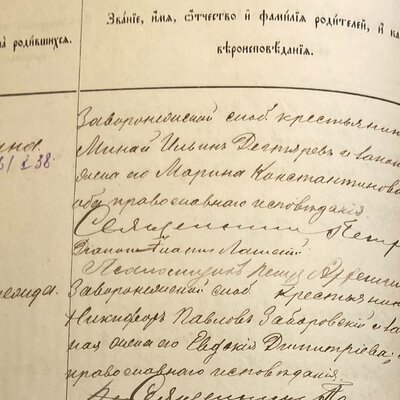 Званіе, имя, отчество и фамилія родителей, и ка
вѣроисповѣданія.
родившихся.
Заворонежской слоб. крестьянин
Минай Ильинъ Дегтяревъ и законн
жена его Марина Константинов
оба православнаго исповѣданія
Священникъ Петр
38.
Псаломщикъ Петръ
Заворонежской слоб. крестьянин
Никифоръ Павловъ Заборовскій и за
ная жена его Евдокія Димитріева,
православнаго исповѣданія.
Священникъ